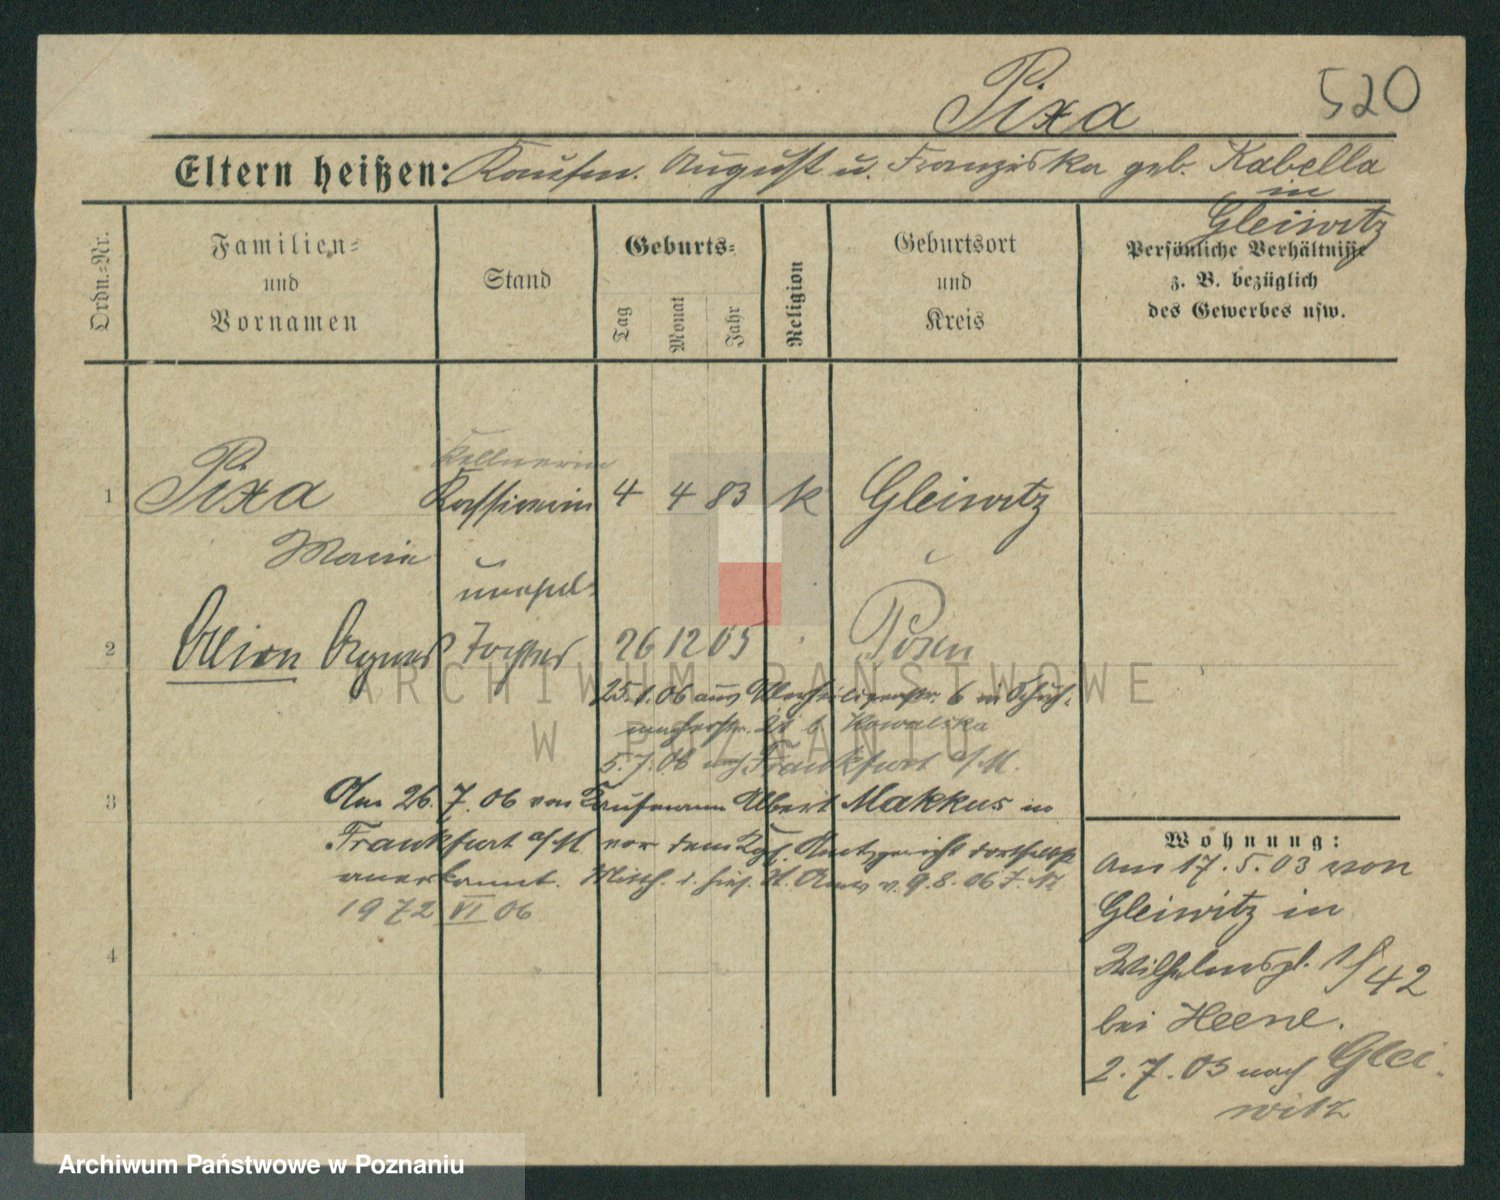 Pixa 520
Eltern heißen: Kaufm. August u. Franziska geb. Kabella
in
Gleiwitz
Ordn.-Nr.
Familien-
und
Vornamen
Stand
Geburts-
Tag
Monat
Jahr
Religion
Geburtsort
und
Kreis
Persönliche Verhältnisse
z. B. bezüglich
des Gewerbes usw.
Kellnerin
1 Pixa Kassirerin 4 4 83 k Gleiwitz
Marie
unehel.
2 Agnes Tochter 26 12 05 Posen
25.1.06 aus 6 in Schuh-
b. Kowalska
5.7.06 nach Frankfurt a/M.
3 Am 26.7.06 von Kaufmann Albert Makkus in
Frankfurt a/M vor dem Kgl. Amtsgericht dortselbst
anerkannt. Mitth. d. v. 9.8.06 J. N
1972 VI 06
4
Wohnung:
Am 17.5.03 von
Gleiwitz in
Wilhelmspl. 1/42
bei Heene.
2.7.03 nach Glei-
witz
ARCHIWUM PAŃSTWOWE
W POZNANIU
Archiwum Państwowe w Poznaniu